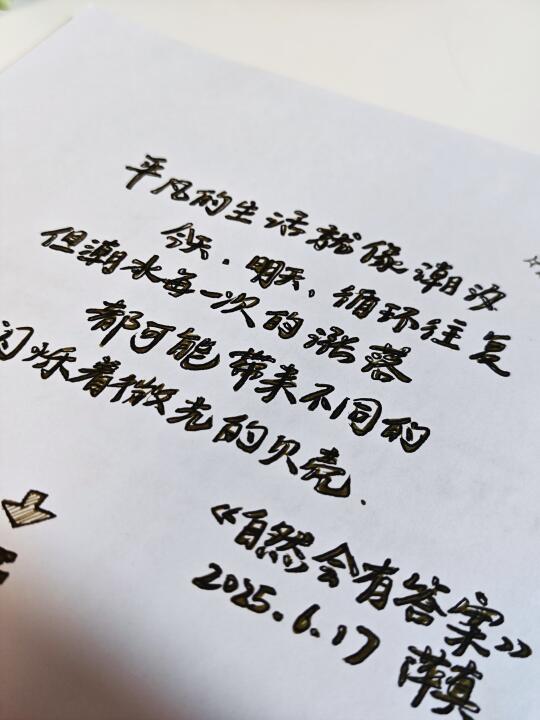 平凡的生活就像潮汐
今天.明天,循环往复
但潮水每一次的涨落
都可能带来不同的
闪烁着微光的贝壳.
《自然会有答案》
2025.6.17 萍真